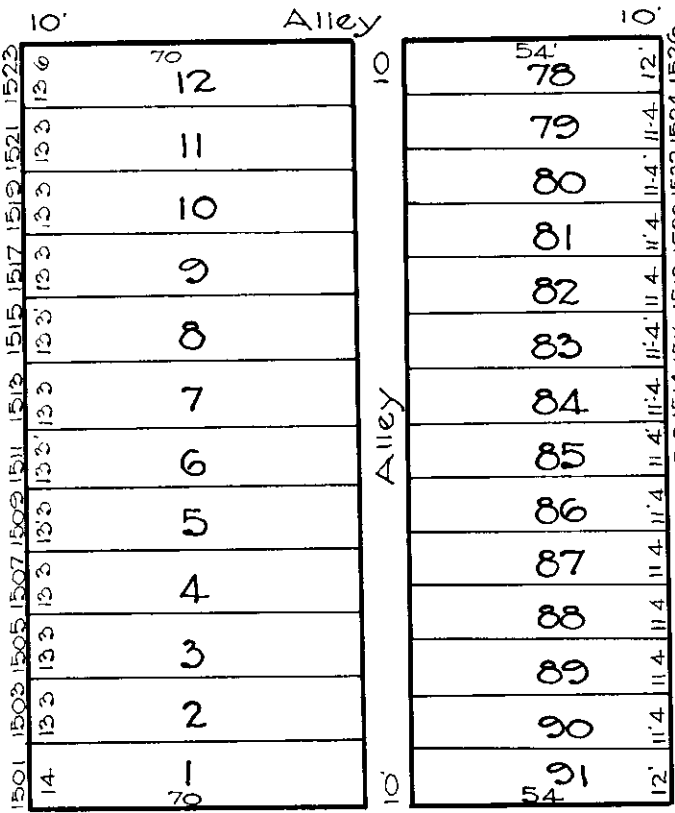 10' Alley 10'
1523 13 6 70 12
1521 13 3 11
1519 13 3 10
1517 13 3 9
1515 13 3' 8
1513 13 3 7
1511 13 3' 6
1509 13'3 5
1507 13 3 4
1505 13 3 3
1503 13 3 2
1501 14. 1 70
10
Alley
10'
54' 78 12' 1526
79 11-4 1524
80 11-4'
81 11'4
82 11 4
83 11-4'
84 11'-4
85 11 4'
86 11'4
87 11 4
88 11 4
89 11 4
90 11'4
91 54 12'